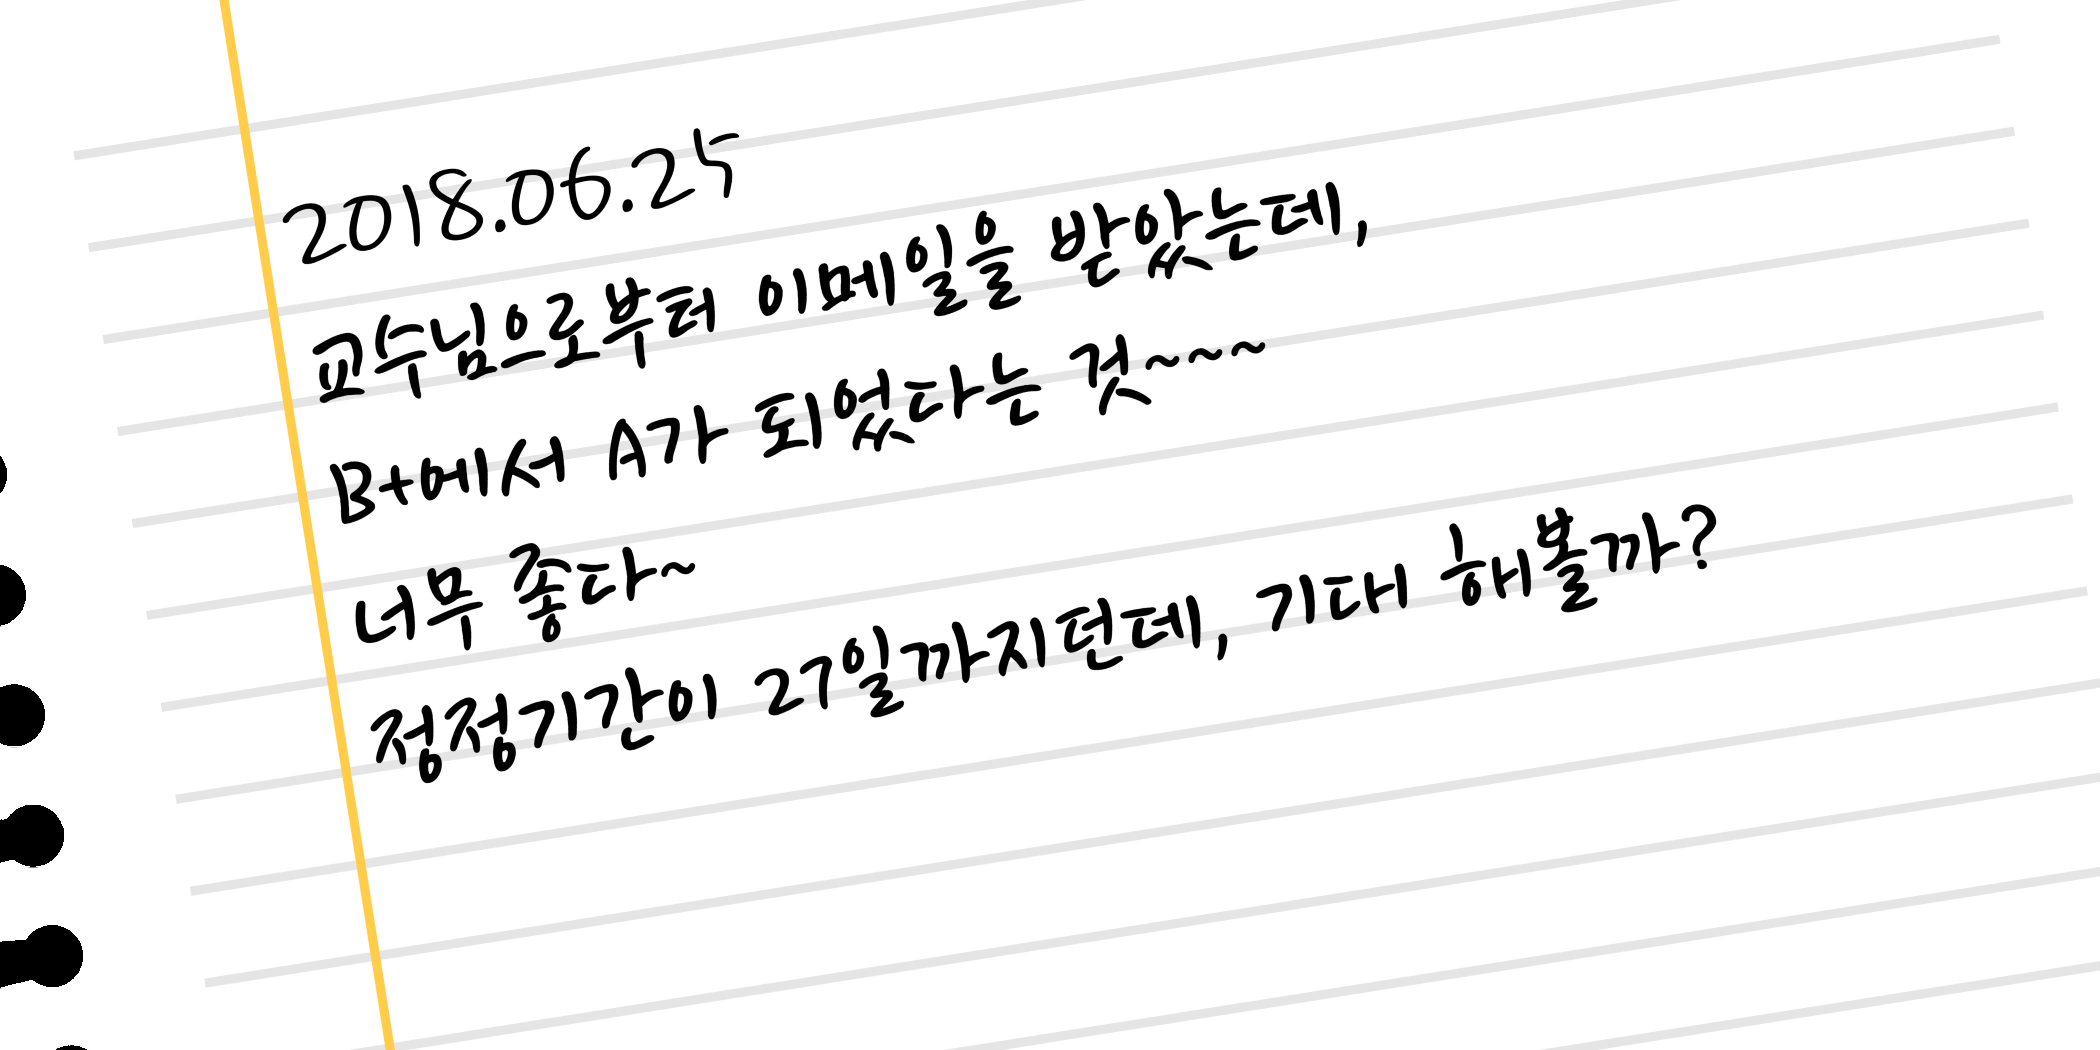 2018.06.25
교수님으로부터 이메일을 받았는데,
B+에서 A가 되었다는 것~~~
너무 좋다~
정정기간이 27일까지던데, 기대 해볼까?